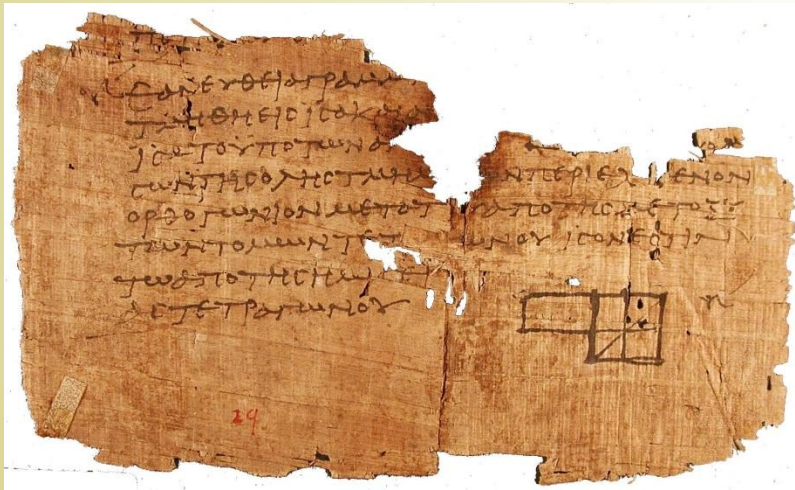 ΕΑΝΕΥΘΕΙΑΓΡΑΜΜ
ΤΜΗΘΗΕΙϹΙϹΑΚΑΙΑ
ΙϹΑΤΟΥΠΟΤΩΝΑ
ϹΩΝΤΗϹΟΛΗϹΤΜΗΜ ΩΝΠΕΡΙΕΧ ΜΕΝΟΝ
ΟΡΘΟΓΩΝΙΟΝΜΕΤΟΤ ΑΠΟΤΗϹΜΕΤΟΞΥ
ΤΩΝΤΟΜΩΝΤΕΤ ΩΝΟΥΙϹΟΝΕϹΤΙΝ
ΤΩΑΠΟΤΗϹΗΜΙϹΕΙ
ΑϹΤΕΤΡΑΓΩΝΟΥ
29